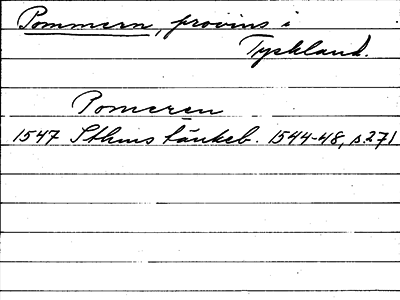 Pommern, provins i
Tyskland.
Pomeren
1547 Sthms tänkeb. 1544-48, s. 271